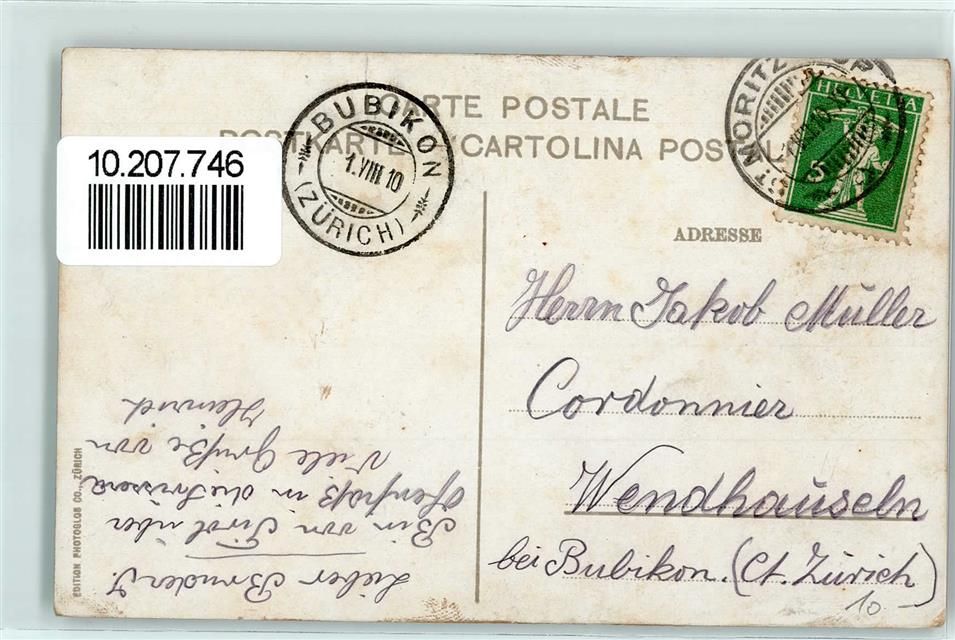 CARTE POSTALE
POSTKARTE CARTOLINA POSTALE
10.207.746
BUBIKON
1.VIII 10
(ZÜRICH)
ST MORITZ
HELVETIA
5
ADRESSE
Herrn Jakob Müller
Cordonnier
Wendhäuseln
bei Bubikon. (Ct. Zürich)
10
Lieber Bruder J.
Bin von Tirol über
Ofenpaß in die
Viele Grüße von
Heinrich
EDITION PHOTOGLOB CO., ZÜRICH